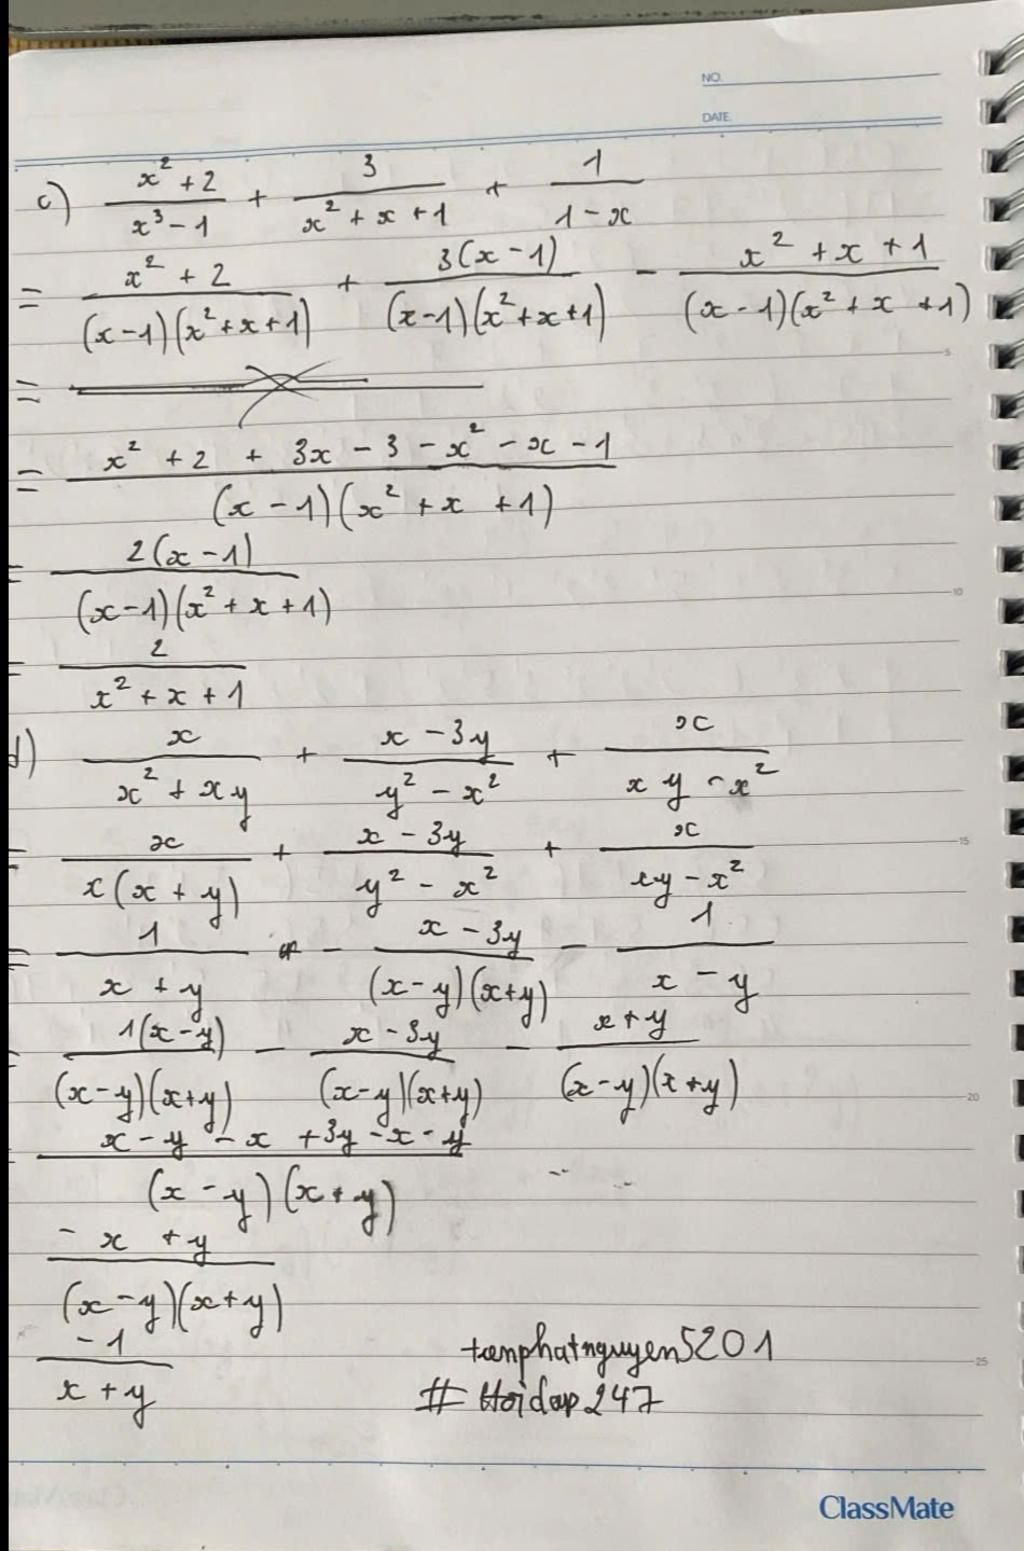 NO.
DATE.
c) \frac{x^2+2}{x^3-1} + \frac{3}{x^2+x+1} + \frac{1}{1-x}
= \frac{x^2+2}{(x-1)(x^2+x+1)} + \frac{3(x-1)}{(x-1)(x^2+x+1)} - \frac{x^2+x+1}{(x-1)(x^2+x+1)}
=
= \frac{x^2+2+3x-3-x^2-x-1}{(x-1)(x^2+x+1)}
= \frac{2(x-1)}{(x-1)(x^2+x+1)}
= \frac{2}{x^2+x+1}
d) \frac{x}{x^2+xy} + \frac{x-3y}{y^2-x^2} + \frac{x}{xy-x^2}
= \frac{x}{x(x+y)} + \frac{x-3y}{y^2-x^2} + \frac{x}{xy-x^2}
= \frac{1}{x+y} - \frac{x-3y}{(x-y)(x+y)} - \frac{1}{x-y}
= \frac{1(x-y)}{(x-y)(x+y)} - \frac{x-3y}{(x-y)(x+y)} - \frac{x+y}{(x-y)(x+y)}
= \frac{x-y-x+3y-x-y}{(x-y)(x+y)}
\frac{-x+y}{(x-y)(x+y)}
\frac{-1}{x+y}
tanphatnguyen5201
# Hoidap247
5
10
15
20
25
ClassMate